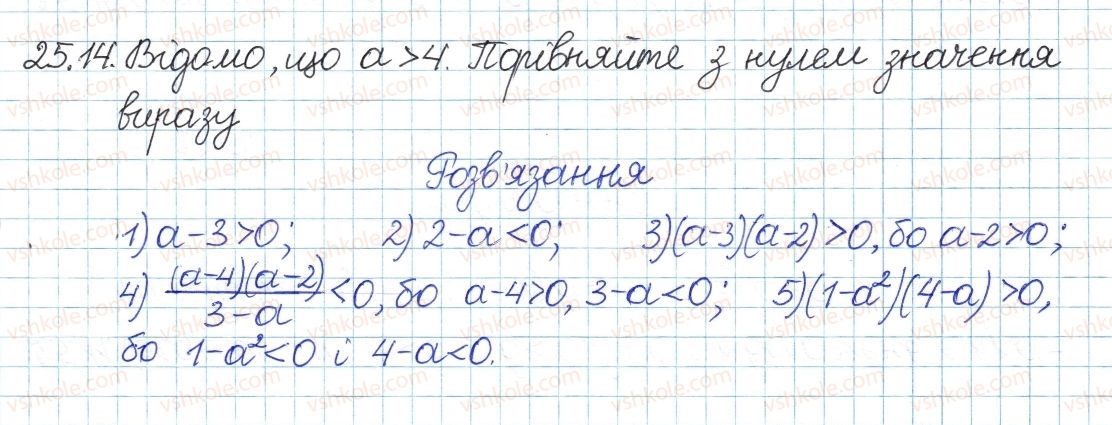 25.14. Відомо, що a>4. Порівняйте з нулем значення
виразу
Розв'язання
1) a-3>0; 2) 2-a<0; 3) (a-3)(a-2)>0, бо a-2>0;
4) (a-4)(a-2)/3-a <0, бо a-4>0, 3-a<0; 5) (1-a²)(4-a)>0,
бо 1-a²<0 і 4-a<0.